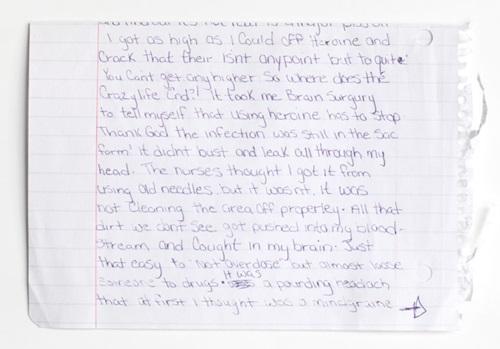 I got as high as I could off Heroine and
Crack that their isnt anypoint 'but to quite'
You Cant get any higher. So where does the
Crazy life End?! It took me Brain Surgury
to tell myself that using heroine has to stop
Thank God the infection was still in the Sac
form! it didnt bust and leak all through my
head. The nurses thought I got it from
using old needles. but it wasnt. It was
not cleaning the area off properley. All that
dirt we cant see got pushed into my blood-
stream and Cought in my brain. Just
that easy to "Not overdose" but almost loose
someone to drugs. It was a pounding headach
that at first I thought was a mindgraine →